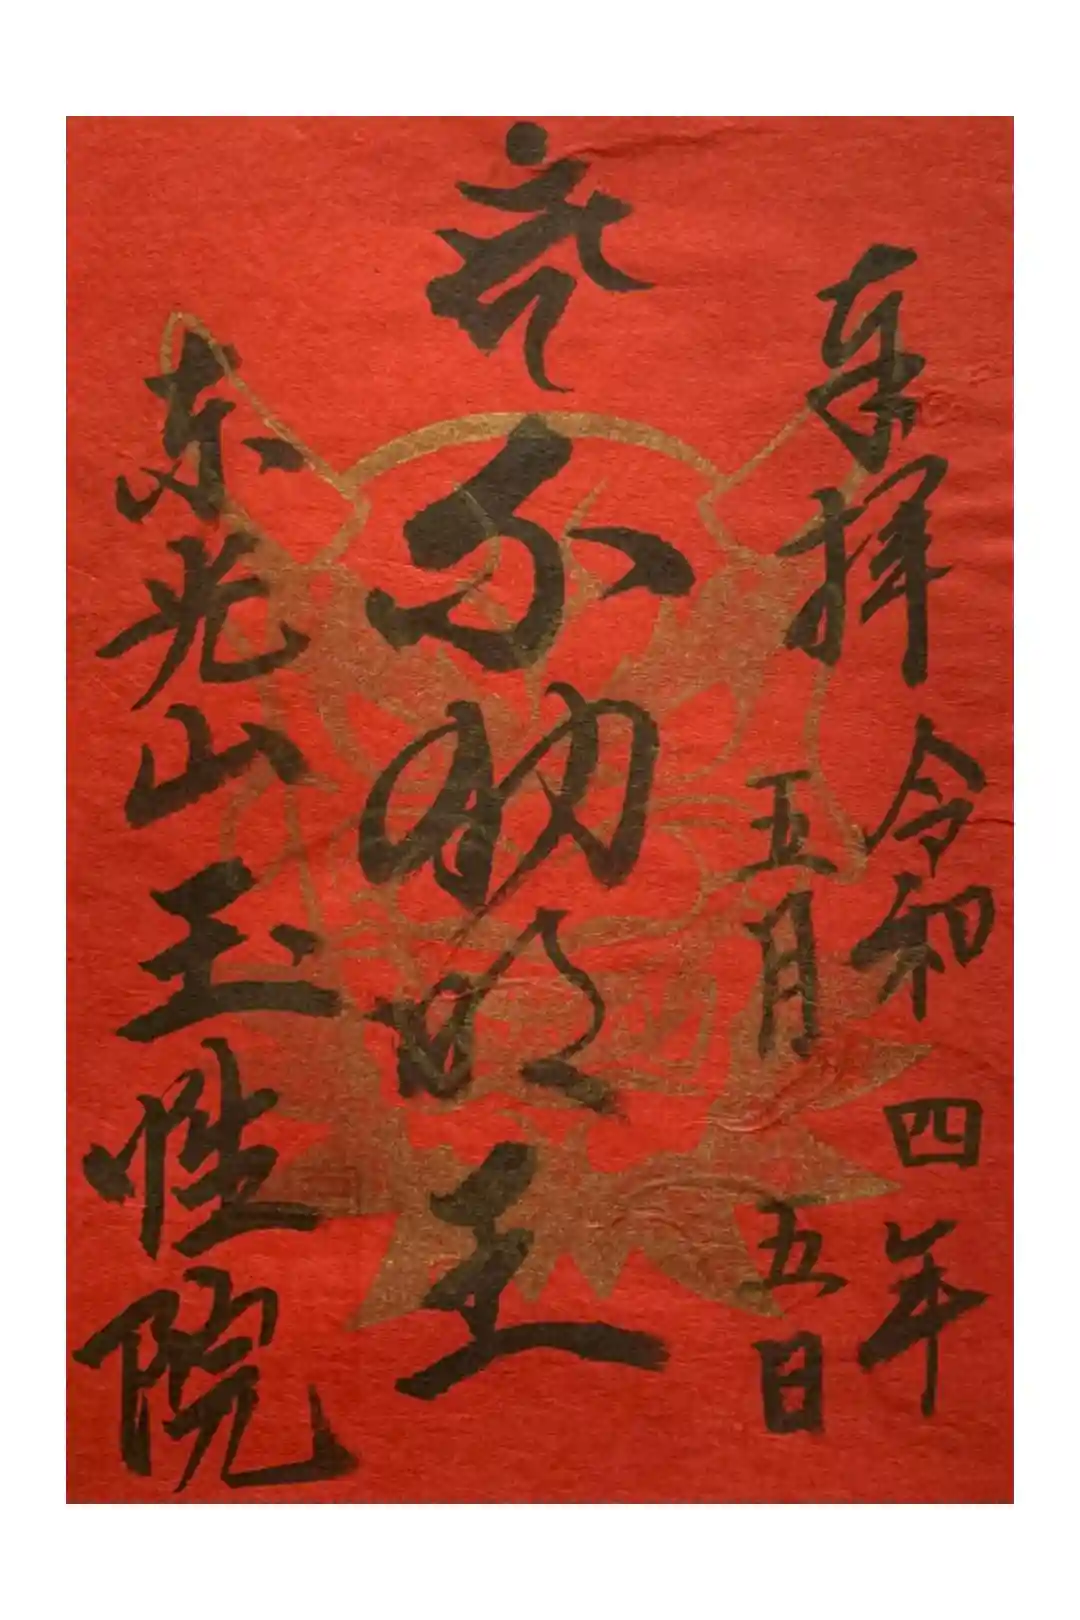 奉拝 令和四年
五月五日
不動明王
東光山玉性院